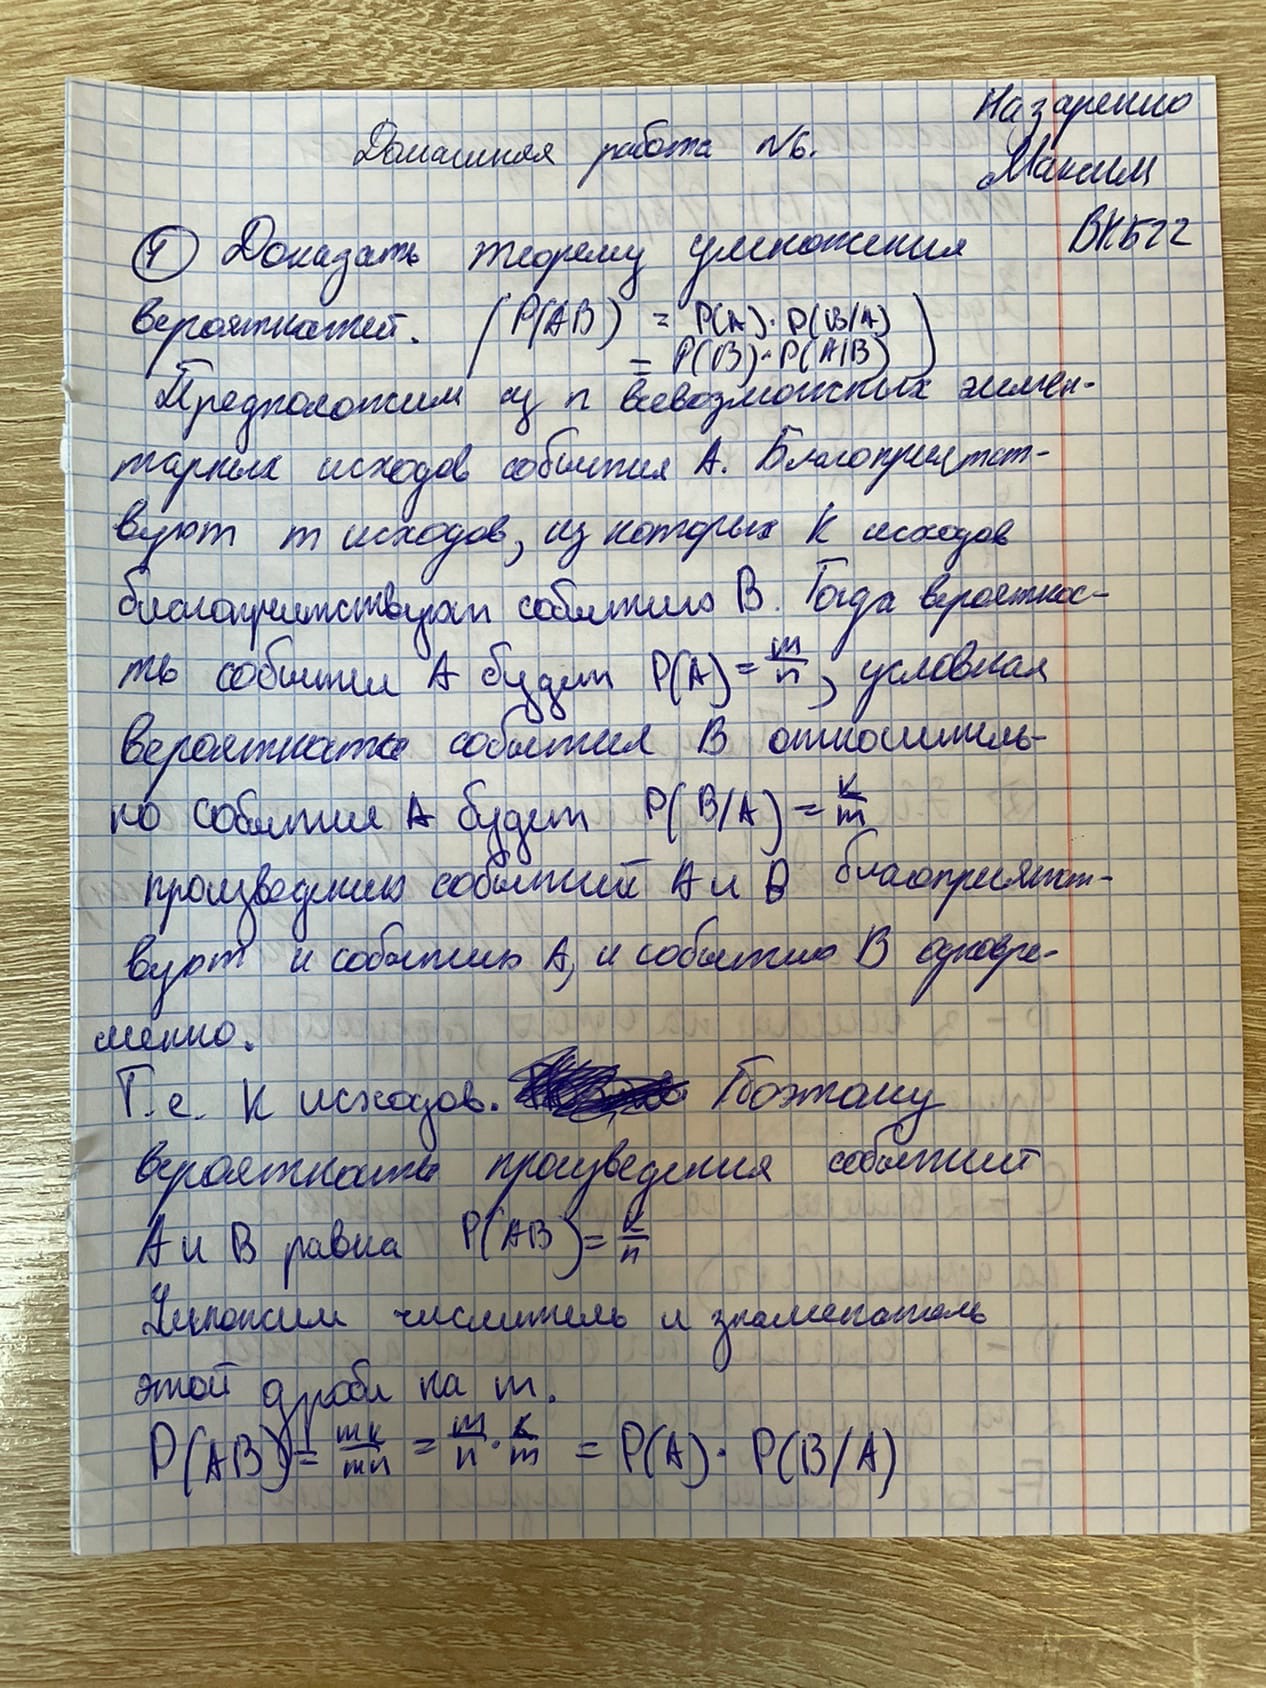 Назаренко
Домашняя работа №6.
Максим
ВКБ22
① Доказать теорему умножения
вероятностей. (P(AB) = P(A)·P(B/A)
= P(B)·P(A/B))
Предположим из n всевозможных элемен-
тарных исходов события A. Благоприятст-
вуют m исходов, из которых k исходов
благоприятствуют событию B. Тогда вероятнос-
ть события A будет P(A) = m/n, условная
вероятность события B относитель-
но события A будет P(B/A) = k/m
произведению событий A и B благоприятст-
вуют и событию A, и событию B одновре-
менно.
Т.е. k исходов. Поэтому
вероятность произведения событий
A и B равна P(AB) = k/n
Умножим числитель и знаменатель
этой дроби на m.
P(AB) = mk/mn = m/n · k/m = P(A) · P(B/A)